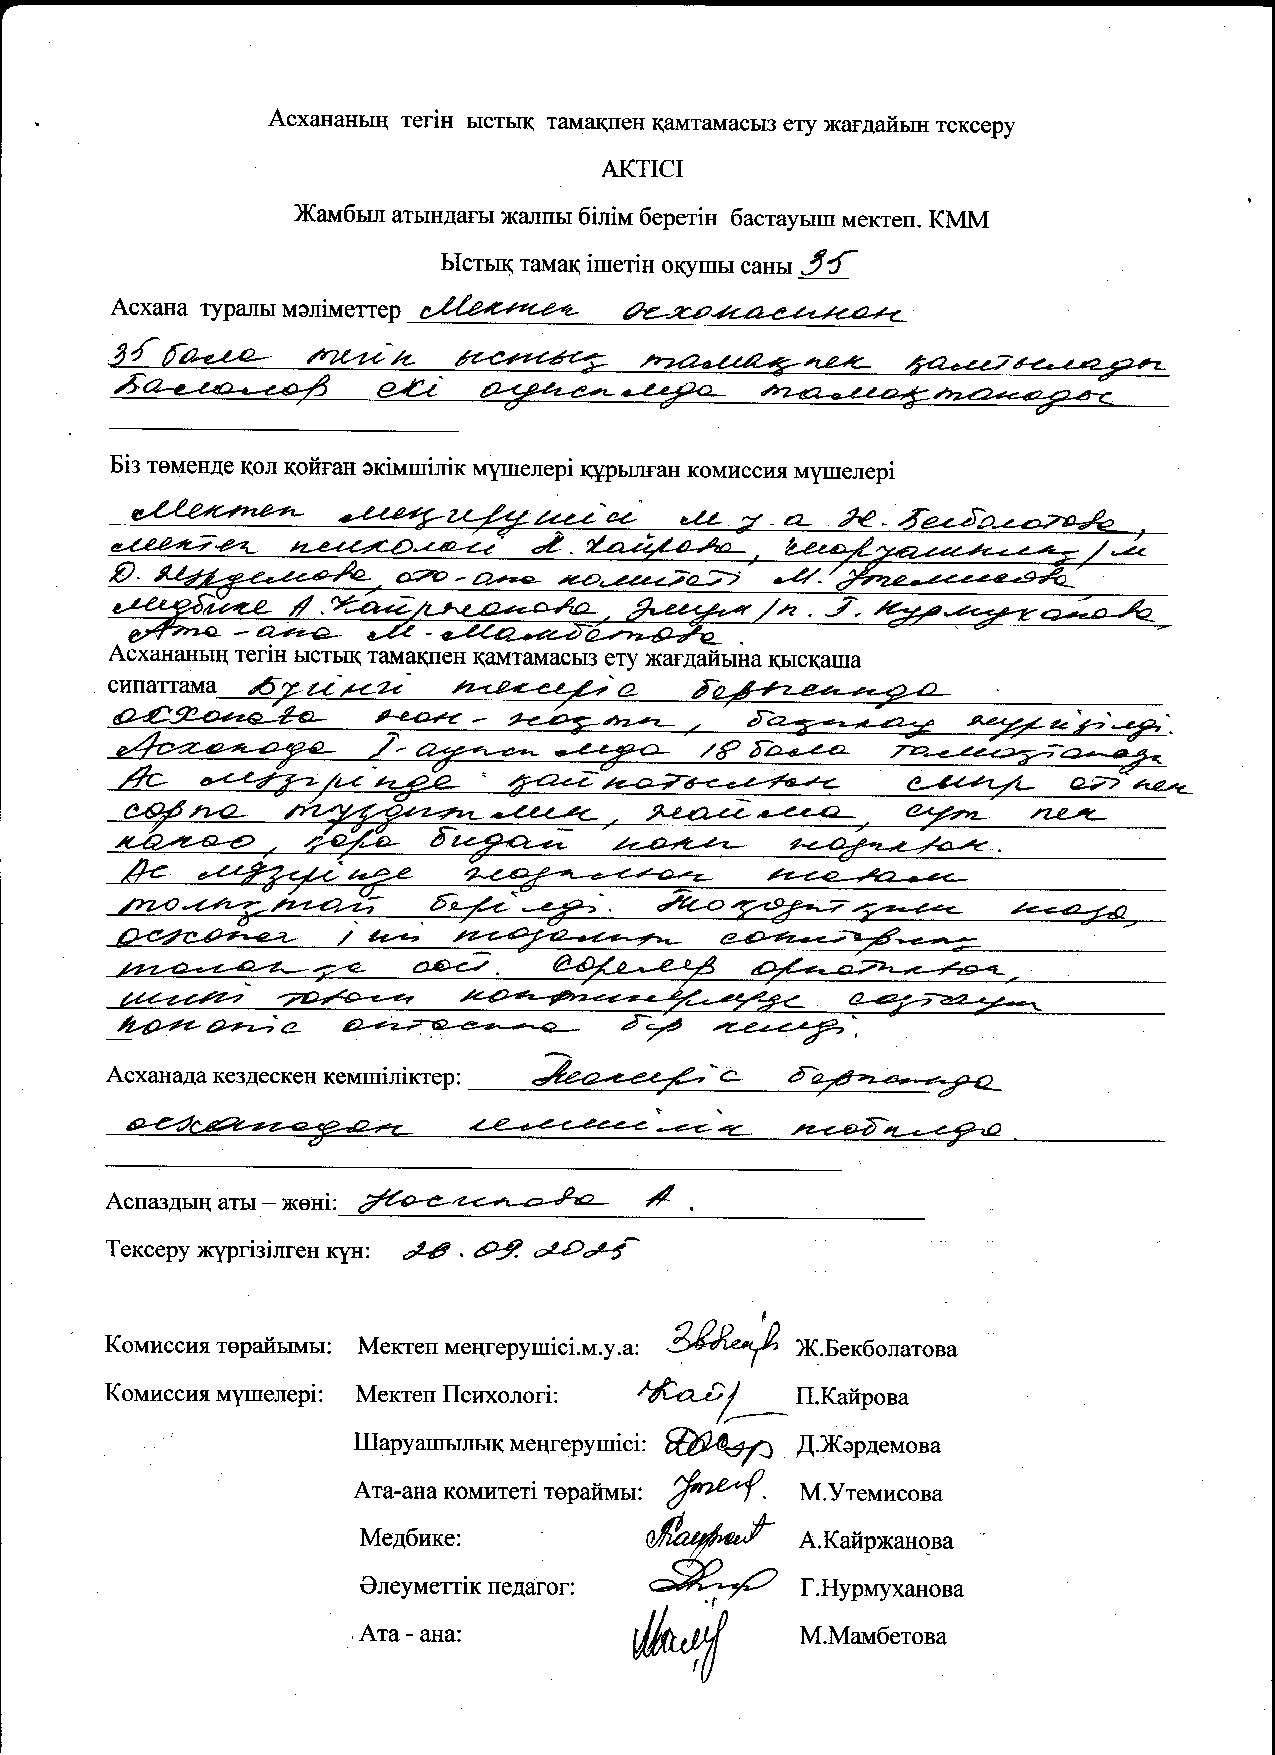 Асхананың тегін ыстық тамақпен қамтамасыз ету жағдайын тексеру
АКТІСІ
Жамбыл атындағы жалпы білім беретін бастауыш мектеп. КММ
Ыстық тамақ ішетін оқушы саны 35
Асхана туралы мәліметтер Мектеп асханасынан
35 бала тегін ыстық тамақпен қамтылады
Балалар екі ауысымда тамақтанады
Біз төменде қол қойған әкімшілік мүшелері құрылған комиссия мүшелері
Мектеп меңгерушісі м.у.а Ж.Бекболатова,
мектеп психологі П.Кайрова, шаруашылық/м
Д.Жәрдемова, ата-ана комитеті М.Утемисова
медбике А.Кайржанова, әлеум/п. Г.Нурмуханова,
Ата-ана М.Мамбетова.
Асхананың тегін ыстық тамақпен қамтамасыз ету жағдайына қысқаша
сипаттама Бүгінгі тексеріс барысында
асханада жан-жақты, бақылау жүргізілді.
Асханада I-ауысымда 18 бала тамақтанады
Ас мәзірінде қайнатылған сиыр етімен
сорпа, жайма, сүт пен
какао, қара бидай наны жазылған.
Ас мәзірінде жазылған тағам
толықтай берілді. таза,
асхана іші тазалығы санитарлық
талапқа сай. Сөрелер орнатылған,
шикі тағам контейнерлерде сақтаулы
Асханада кездескен кемшіліктер: Тексеріс барысында
асханадан кемшілік табылды
Аспаздың аты – жөні: Насипова А.
Тексеру жүргізілген күн: 20.09.2025
Комиссия төрайымы: Мектеп меңгерушісі.м.у.а: Ж.Бекболатова
Комиссия мүшелері: Мектеп Психологі: Кайр П.Кайрова
Шаруашылық меңгерушісі: Д.Жәрдемова
Ата-ана комитеті төраймы: Утем. М.Утемисова
Медбике: А.Кайржанова
Әлеуметтік педагог: Г.Нурмуханова
Ата - ана: М.Мамбетова